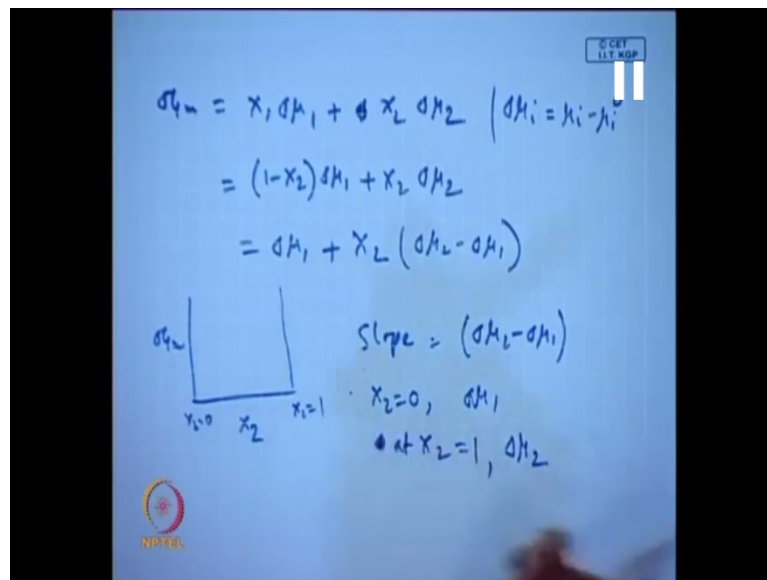 © CET
I.I.T. KGP
ΔGm = x1 Δμ1 + x2 Δμ2 | Δμi = μi - μi°
= (1-x2) Δμ1 + x2 Δμ2
= Δμ1 + x2 (Δμ2 - Δμ1)
ΔGm
x2=0
x2
x2=1
Slope = (Δμ2 - Δμ1)
x2=0, Δμ1
at x2=1, Δμ2
NPTEL